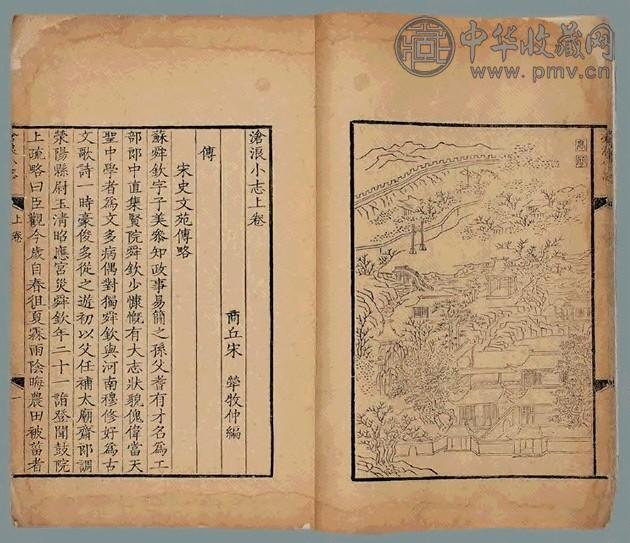 中华收藏网
www.pmv.cn
滄浪小志上卷
商丘宋 犖牧仲編
傳
宋史文苑傳略
蘇舜欽字子美叅知政事易簡之孫父耆有才名爲工
部郎中直集賢院舜欽少慷慨有大志狀貌傀偉當天
聖中學者爲文多病偶對獨舜欽與河南穆修好爲古
文歌詩一時豪俊多從之遊初以父任補太廟齋郎調
滎陽縣尉玉清昭應宮災舜欽年二十一詣登聞鼓院
上疏略曰臣觀今歲自春徂夏霖雨陰晦農田被菑者
上卷
一